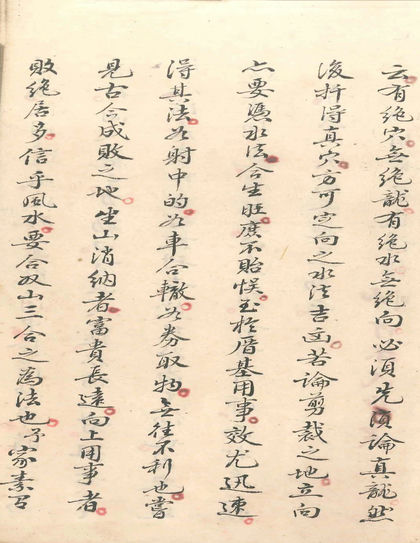 云有絶穴無絶龍有絶水無絶向必須先須論真龍然
後扦得真穴方可定向之水法吉凶若論剪裁之地立向
亦要憑水法合生旺庶不貽悮至於厝基用事效尤迅速
得其法如射中的如車合轍如券取物無往不利也嘗
見古今成敗之地坐山消納者富貴長遠向上用事者
敗絶居多信乎風水要合双山三合之為法也予家素習